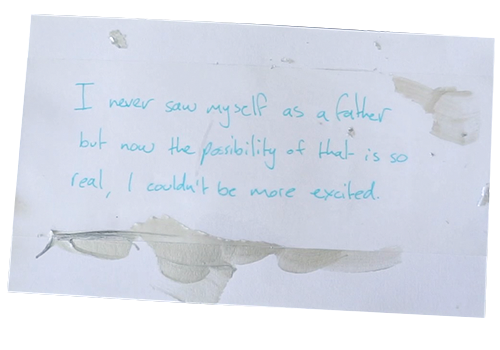 I never saw myself as a father
but now the possibility of that is so
real, I couldn't be more excited.